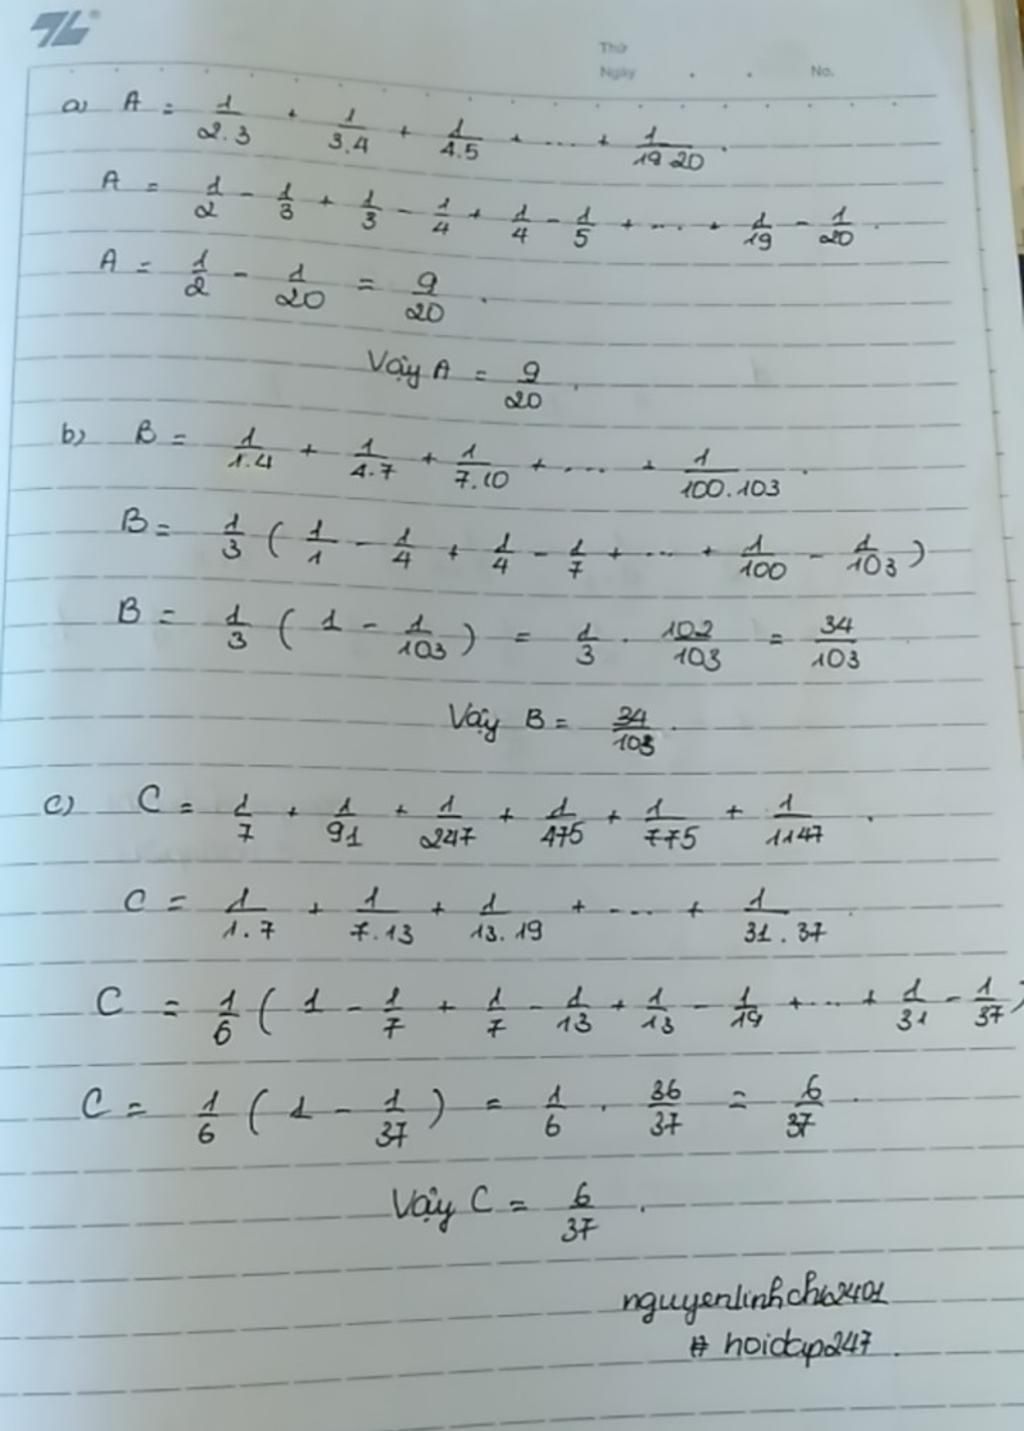 Thứ
Ngày . . No.
a) A = 1/2.3 + 1/3.4 + 1/4.5 + ... + 1/19.20 .
A = 1/2 - 1/3 + 1/3 - 1/4 + 1/4 - 1/5 + ... + 1/19 - 1/20 .
A = 1/2 - 1/20 = 9/20 .
Vậy A = 9/20 .
b) B = 1/1.4 + 1/4.7 + 1/7.10 + ... + 1/100.103 .
B = 1/3 ( 1/1 - 1/4 + 1/4 - 1/7 + ... + 1/100 - 1/103 )
B = 1/3 ( 1 - 1/103 ) = 1/3 . 102/103 = 34/103
Vậy B = 34/103 .
c) C = 1/7 + 1/91 + 1/247 + 1/475 + 1/775 + 1/1147 .
C = 1/1.7 + 1/7.13 + 1/13.19 + ... + 1/31.37 .
C = 1/6 ( 1 - 1/7 + 1/7 - 1/13 + 1/13 - 1/19 + ... + 1/31 - 1/37 )
C = 1/6 ( 1 - 1/37 ) = 1/6 . 36/37 = 6/37 .
Vậy C = 6/37 .
# hoidap247 .